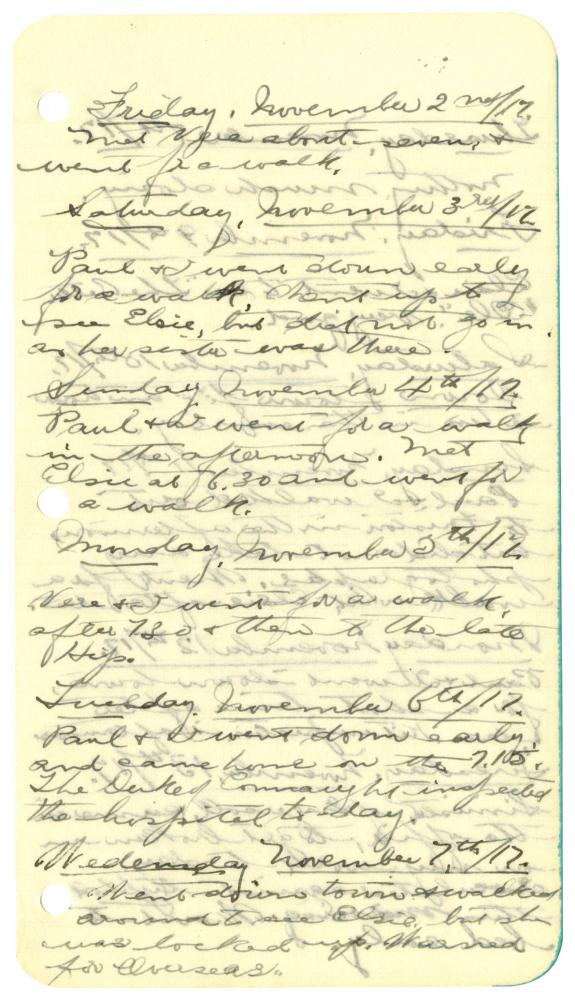 Friday, November 2nd/17.
Met Vere about seven, &
went for a walk.
Saturday, November 3rd/17
Paul & I went down early
for a walk, Went up to
see Elsie, but did not go in
as her sister was there.
Sunday November 4th/17.
Paul & I went for a walk
in the afternoon. Met
Elsie at 6.30 and went for
a walk.
Monday, November 5th/17.
Vere & I went for a walk,
after 7.30. & then to the late
Hip.
Tuesday. November 6th/17.
Paul & I went down early
and came home on the 7.105.
The Duke of Connaught inspected
the hospital to-day.
Wedensday November 7th/17.
Went down town & walked
around to see Elsie, but she
was locked up. Warned
for Overseas.